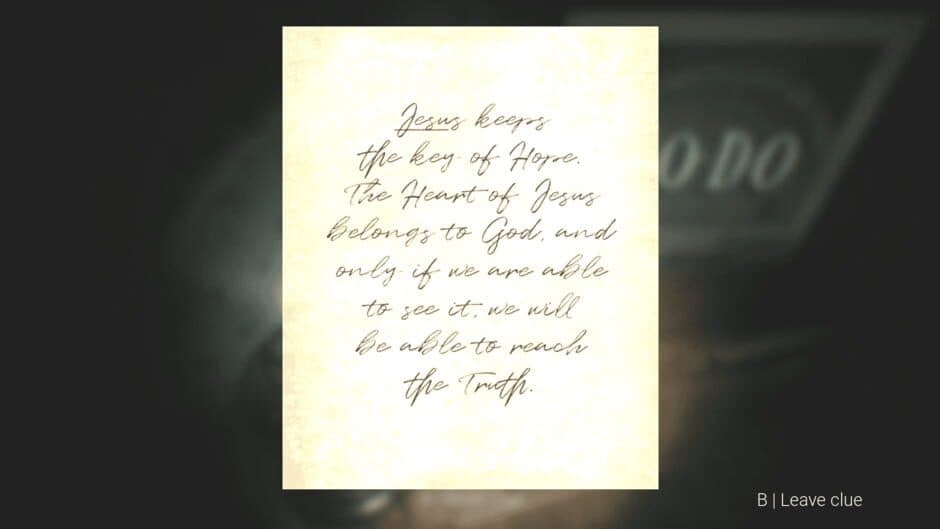 Jesus keeps
the key of Hope.
The Heart of Jesus
belongs to God, and
only if we are able
to see it, we will
be able to reach
the Truth.
O·DO
B | Leave clue